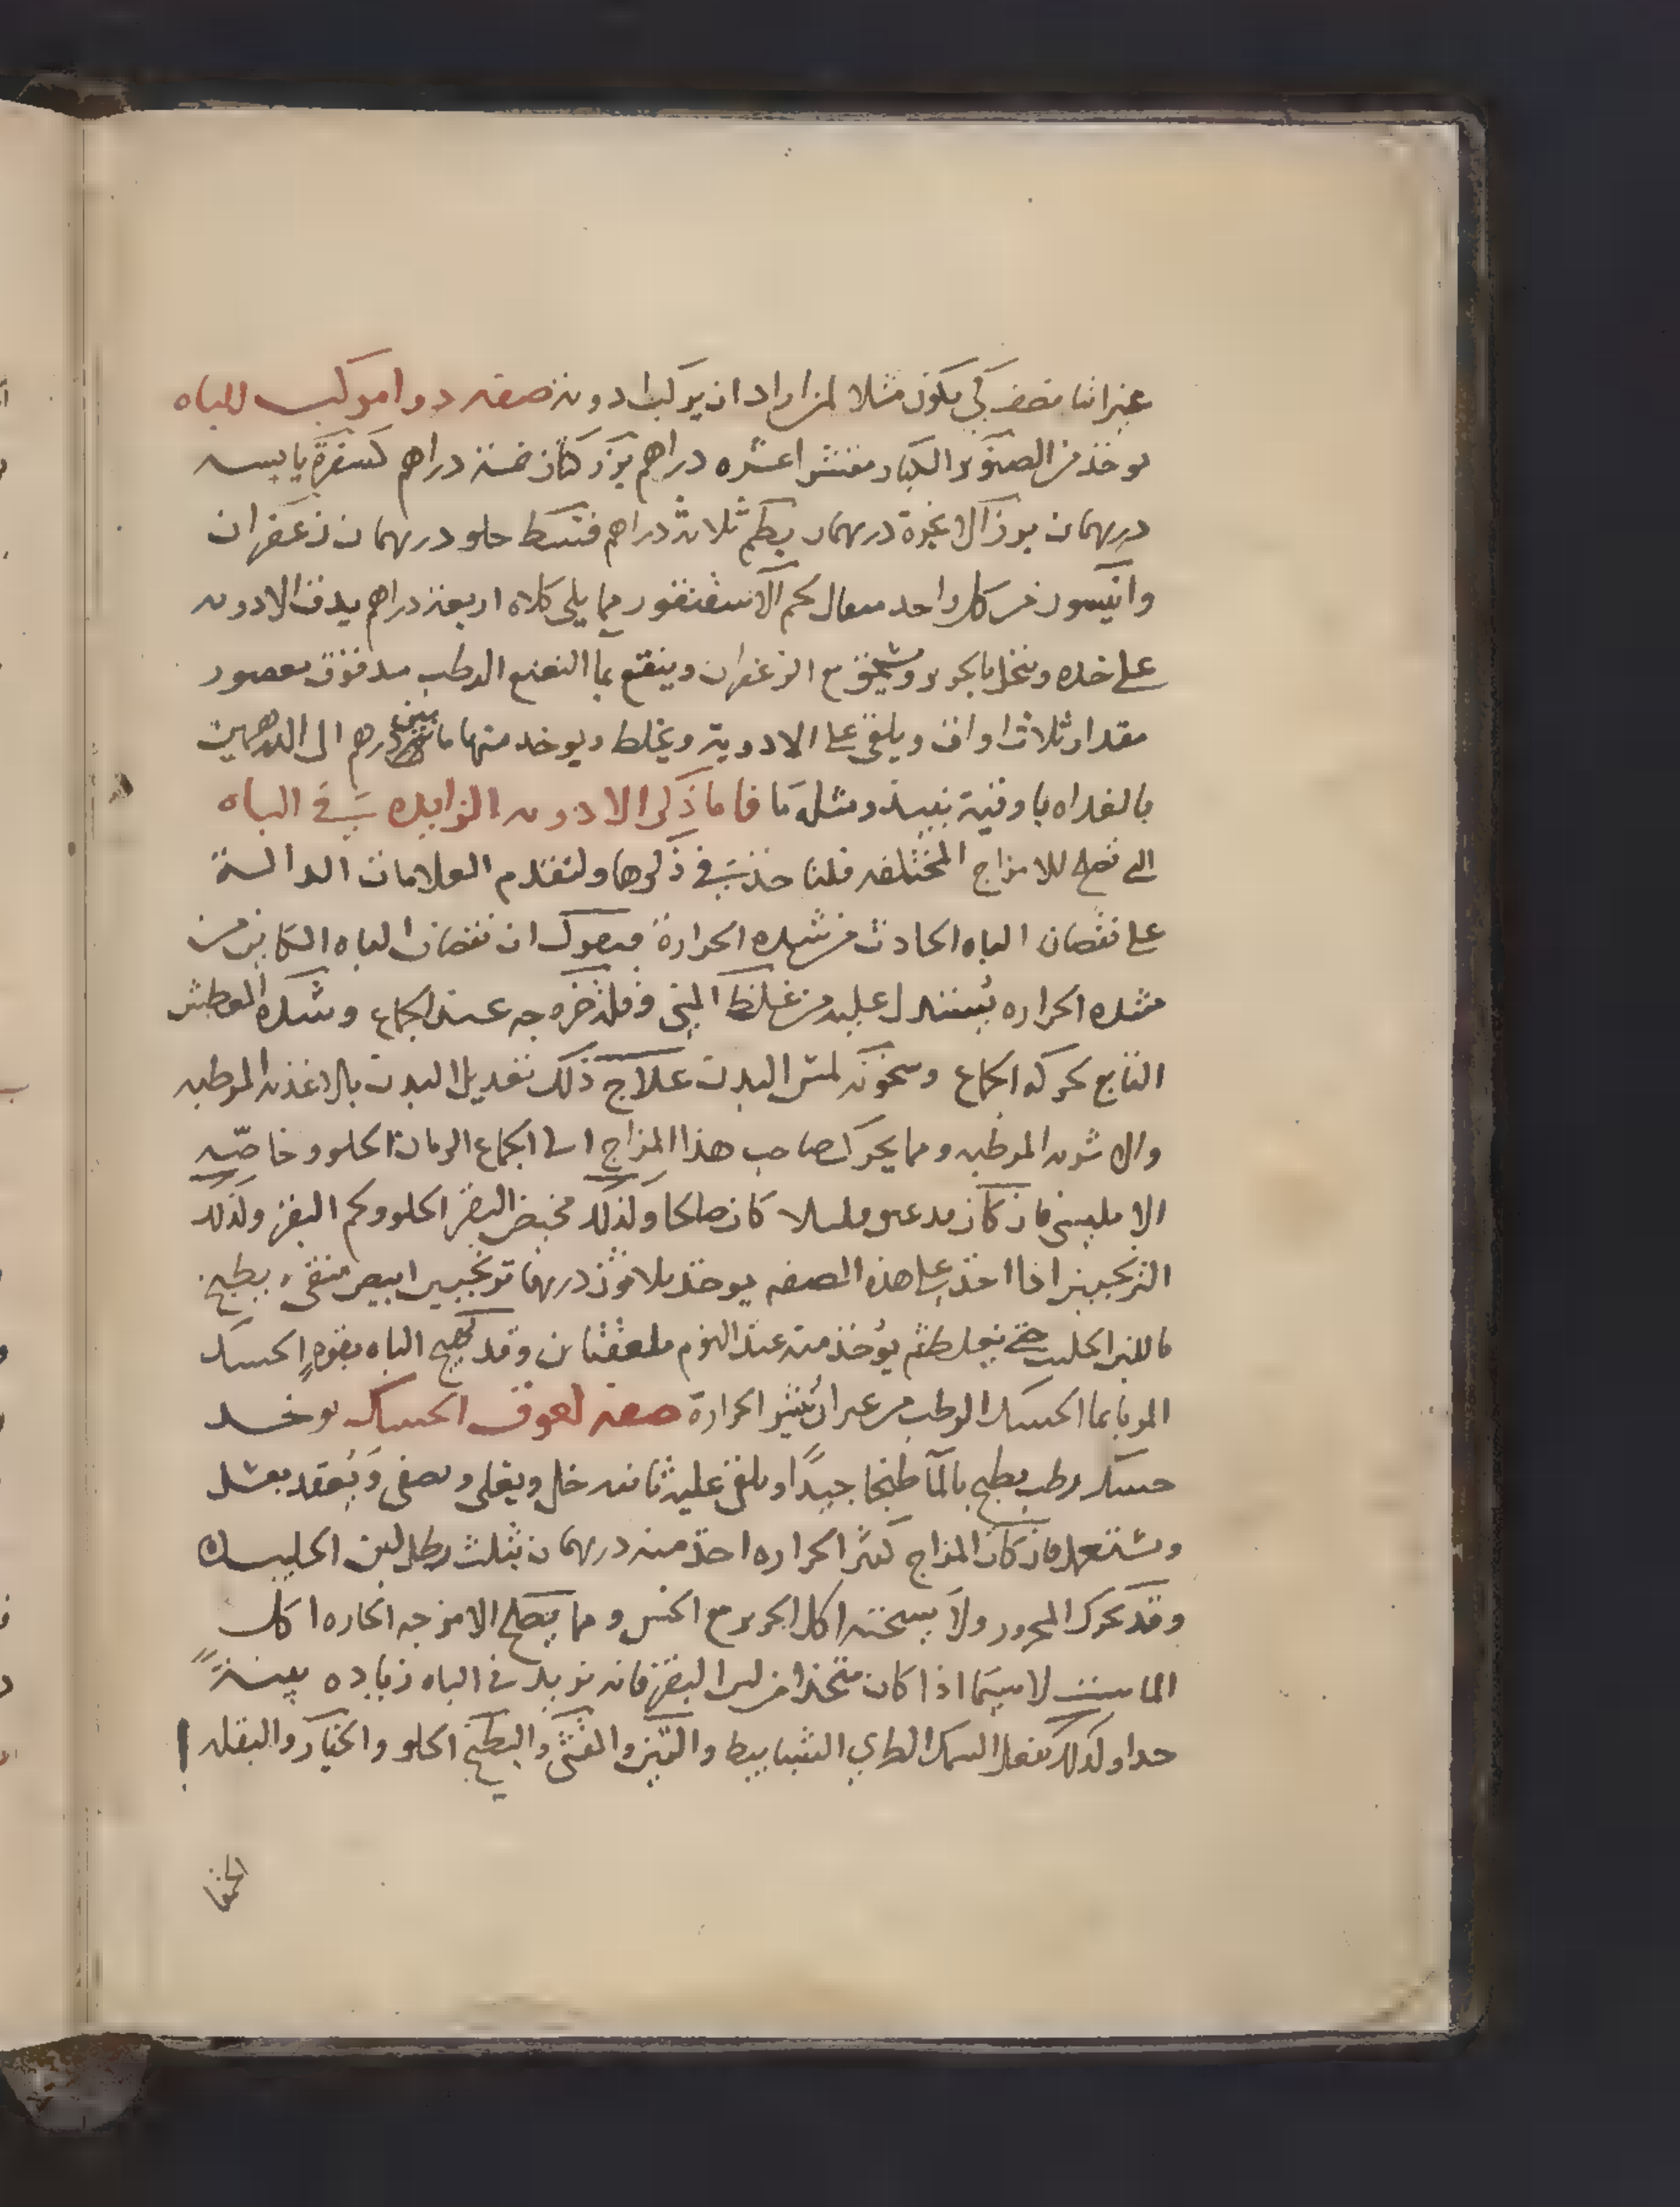 غير انا نصف كي يكون مثلا لمن اراد ان يركب ادوية صفه دوا مركب للباه
يوخذ من الصنوبر الكبار مقشرا عشره دراهم بزر كتان خمسة دراهم كسفرة يابسه
درهمان بزر الانجرة درهمان بطم ثلاثة دراهم قسط حلو درهمان زعفران
وانيسون من كل واحد مثقال لحم الاسقنقور مما يلي كلاه اربعة دراهم يدق الادويه
على حده وينخل بالحرير ويسحق مع الزعفران وينقع بما النعنع الرطب مدقوق معصور
مقدار ثلاث اواق ويلقى على الادوية ويخلط ويوخد منها ما بين درهم الى الدرهمين
بالغداه باوقية نبيذ ومثله ما فاما ذكر الادويه الزايده في الباه
التي تصلح للامزاج المختلفه فلناخذ في ذكرها ولنقدم العلامات الدالة
على نقصان الباه الحادث من شده الحرارة فنقول ان نقصان الباه الكاين من
شده الحراره يستدل عليه من غلظ المني وقلة خروجه عند الجماع وشده العطش
التابع لحركه الجماع وسخونه لمس البدن علاج ذلك تعديل البدن بالاغذيه المرطبه
والاشربه المرطبه ومما يحرك صاحب هذا المزاج الى الجماع الرمان الحلو وخاصّه
الامليسي فان كان فيه عفوصة قليلا كان صالحا ولذلك مخيض البقر الحلو ولحم البقر ولذلك
الترنجبين اذا اخذ على هذه الصفه يوخذ ثلاثون درهما ترنجبين ابيض منقى يطبخ
باللبن الحليب حتى يغلظ ثم يؤخذ منه عند النوم ملعقتان وقد يهيج الباه بقوه الحسك
المربا بما الحسك الرطب من غير ان يثير الحرارة صفه لعوق الحسك يوخد
حسك رطب يطبخ بالمآ طبخا جيدًا ويلقى عليه ثانيه خل ويغلى ويصفى وَيُعقد بعسل
ويستعمل فان كان المزاج كثير الحراره اخذ منه درهمان بثلث رطل لبن الحليب
وقد يحرك المحرور ولا يسخنه اكل الجرجير مع الخس ومما يصلح الامزجه الحاره اكل
الماست لا سيما اذا كان متخذا من لبن البقر فانه يزيد في الباه زياده بينةً
جدا ولذلك يفعل السمك الطري الشبابيط والتين والقثى والبطيخ الحلو والخيار والبقله
الحمقا